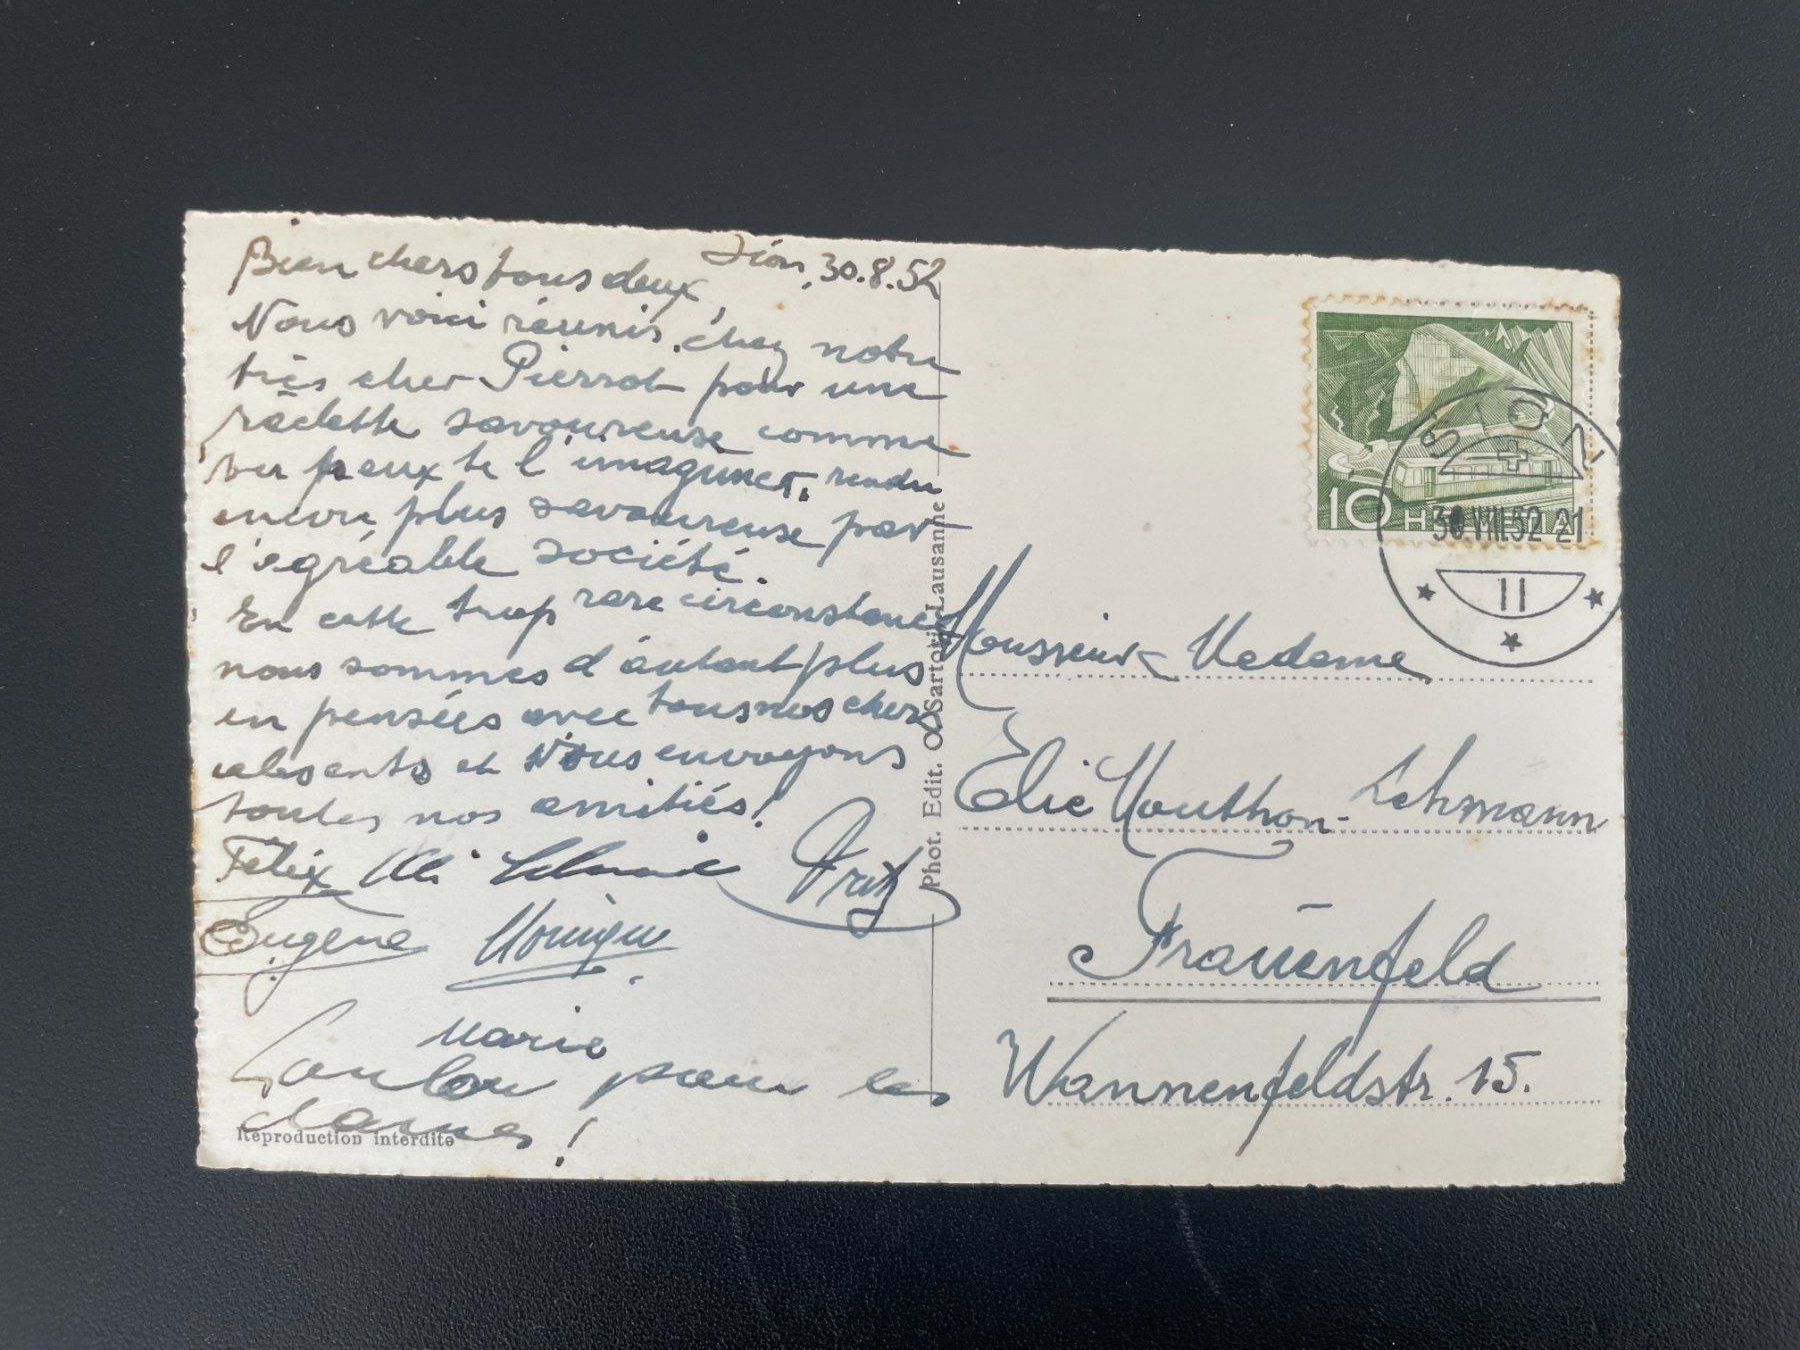 Sion, 30.8.52
Bien chers tous deux,
Nous voici réunis chez notre
très cher Pierrot pour une
râclette savoureuse comme
tu peux te l'imaginer, rendue
encore plus savoureuse par
l'agréable société.
En cette trop rare circonstance
nous sommes d'autant plus
en pensées avec tous nos chers
absents et vous envoyons
toutes nos amitiés!
Félix Fritz
Eugène Monique
Marie
pour les
dames!
Reproduction interdite
Phot. Edit. O. Sartori, Lausanne
10 HELVETIA
SION
30.VIII.52 21
11
Monsieur & Madame
Elie Mouthon-Lehmann
Frauenfeld
Wannenfeldstr. 15.